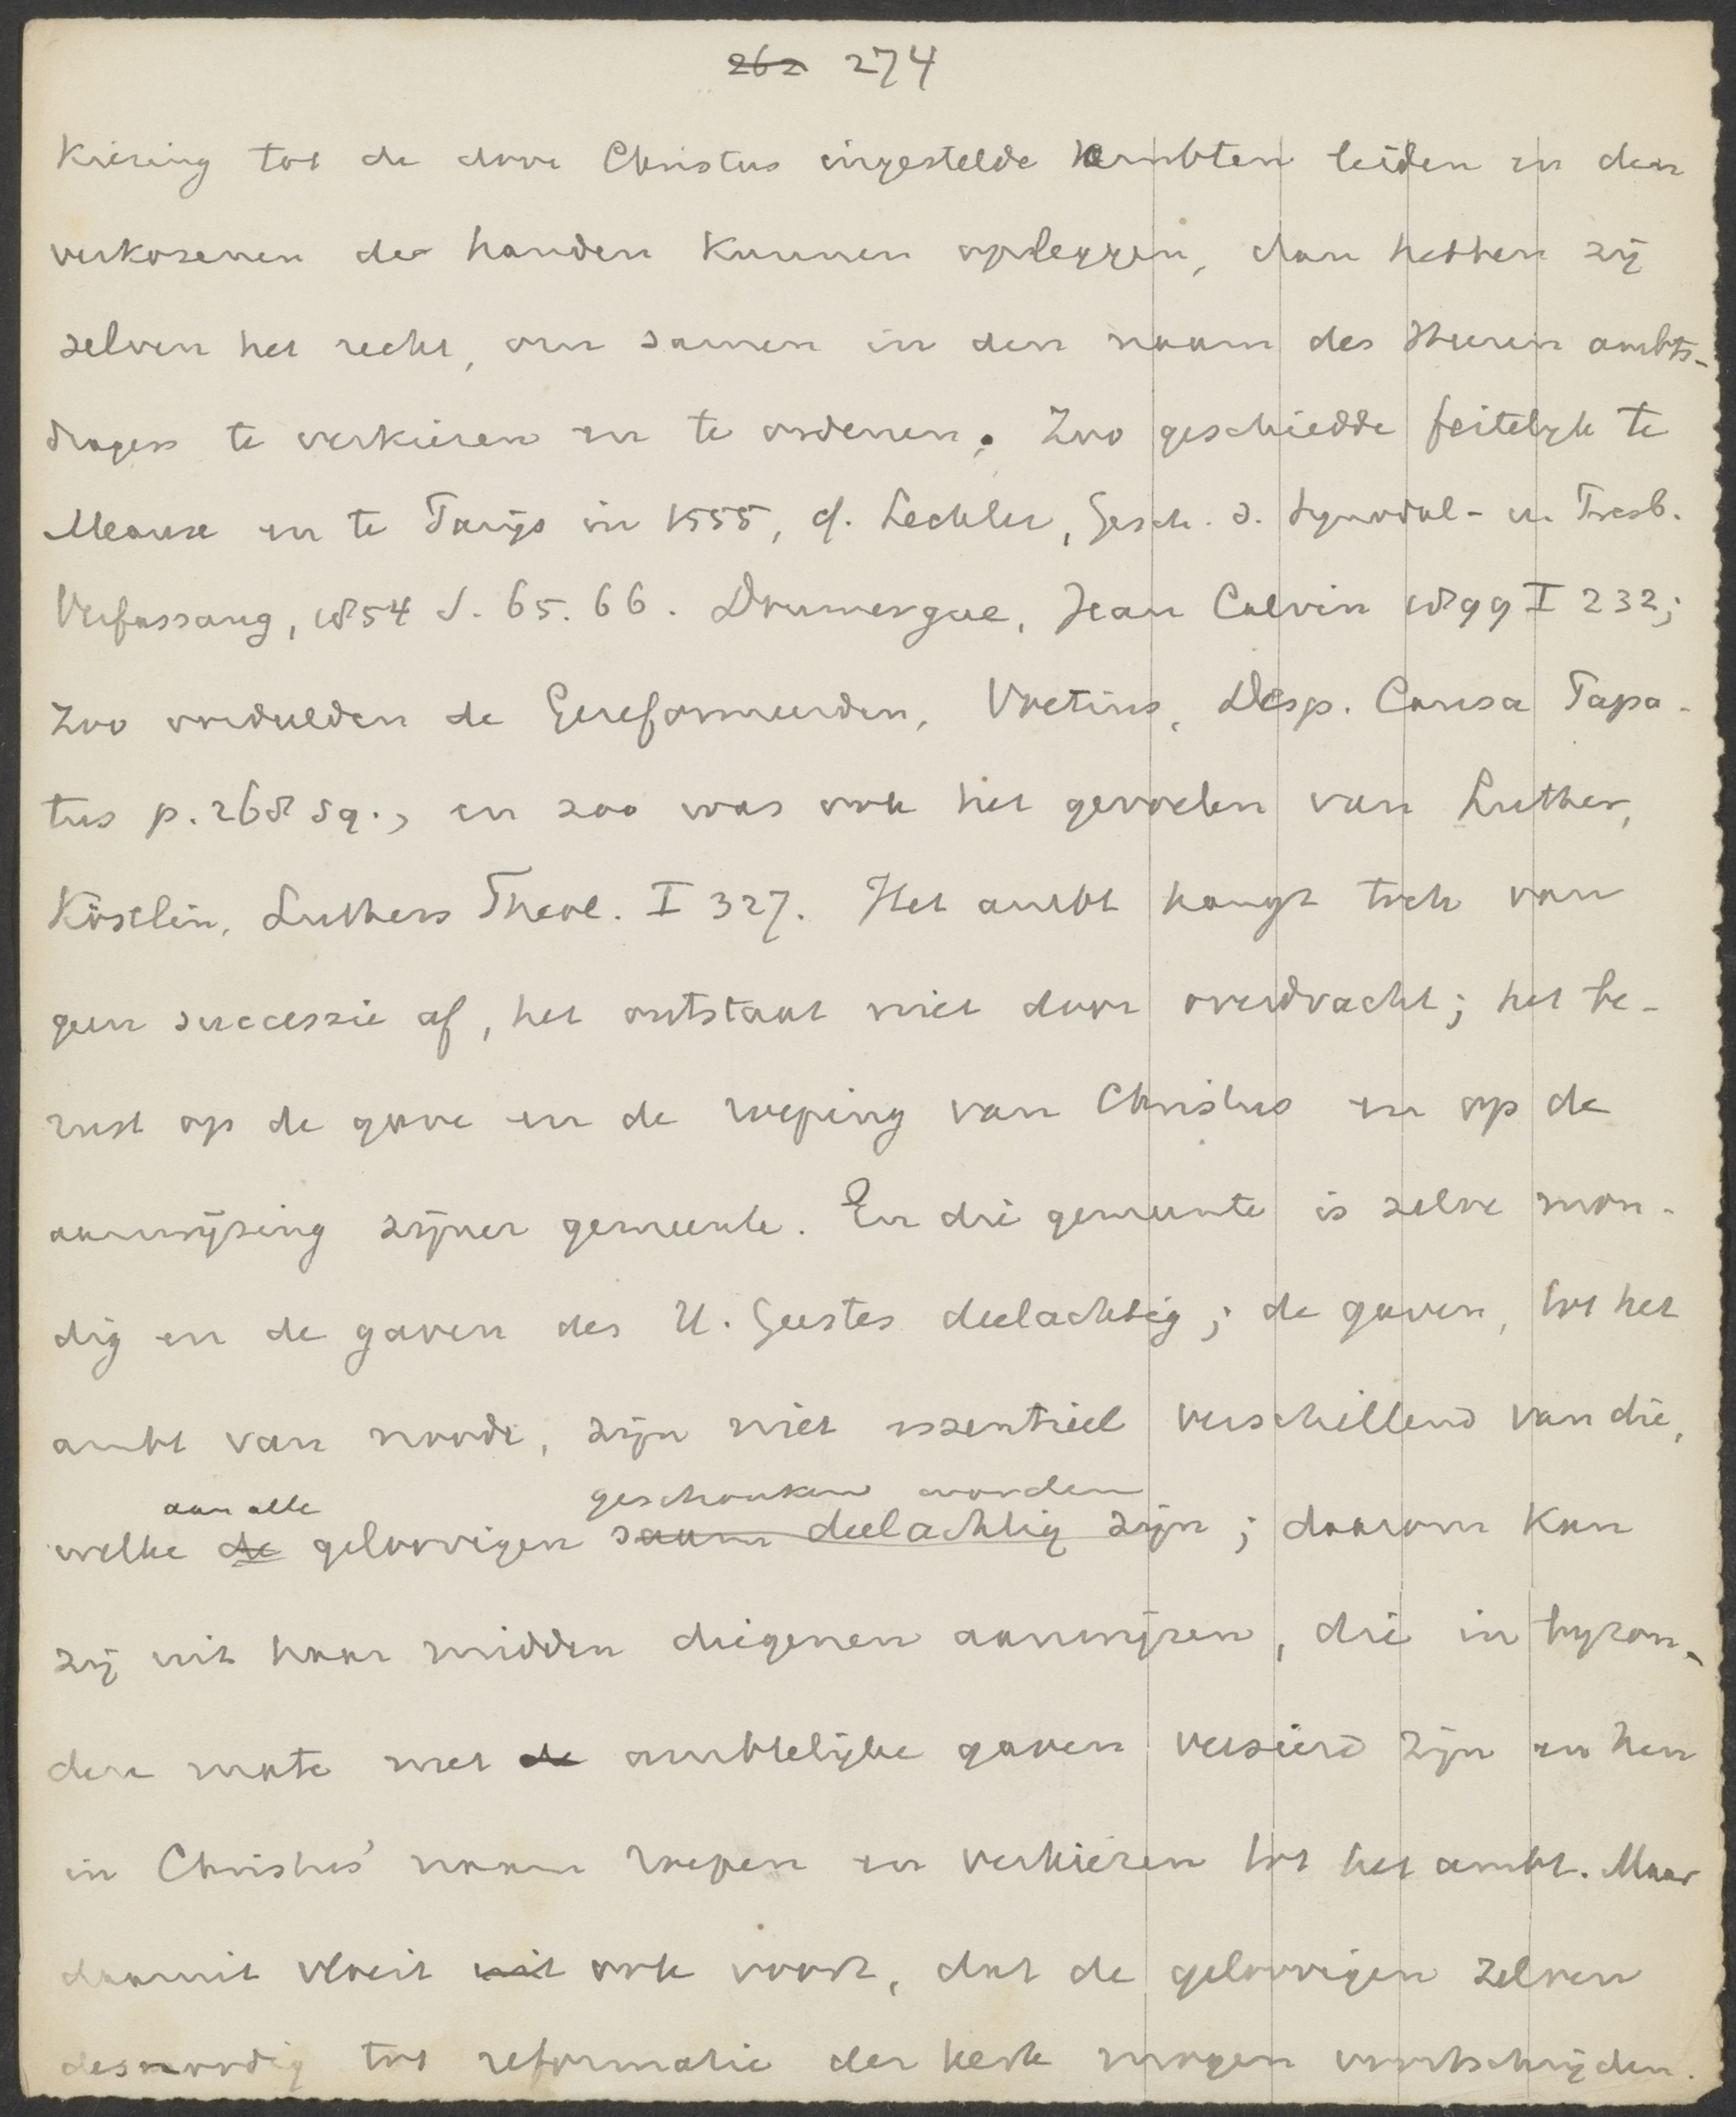 262 274
kiezing tot de door Christus ingestelde ambten leiden en den
verkozenen de handen kunnen opleggen, dan hebben zij
zelven het recht, om samen in den naam des Heeren ambts-
dragers te verkiezen en te ordenen. Zoo geschiedde feitelijk te
Meaux en te Parijs in 1555, cf. Lechler, Gesch. d. Synodal- u. Presb.
Verfassung, 1854 S. 65. 66. Doumergue, Jean Calvin 1899 I 232;
zoo oordeelden de Gereformeerden, Voetius, Desp. Causa Papa-
tus p. 268 sq., en zoo was ook het gevoelen van Luther,
Köstlin, Luthers Theol. I 327. Het ambt hangt toch van
geen successie af, het ontstaat niet door overdracht; het be-
rust op de gave en de roeping van Christus en op de
aanwijzing zijner gemeente. En die gemeente is zelve mon-
dig en de gaven des H. Geestes deelachtig; de gaven, tot het
ambt van noode, zijn niet essentieel verschillend van die,
aan alle geschonken worden
welke de geloovigen saam deelachtig zijn; daarom kan
zij uit haar midden diegenen aanwijzen, die in byzon-
dere mate met de ambtelijke gaven versierd zijn en hen
in Christus' naam roepen en verkiezen tot het ambt. Maar
daaruit vloeit uit ook voort, dat de geloovigen zelven
desnoodig tot reformatie der kerk mogen voortschrijden.